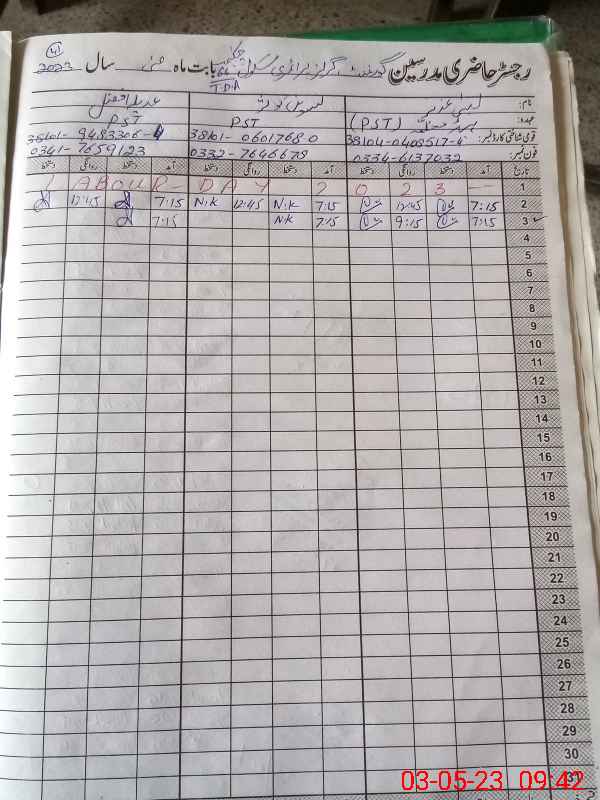 41
رجسٹر حاضری مدرسین گورنمنٹ گرلز پرائمری سکول بابت ماہ مئی سال 2023
T.D.A
نام:
عہدہ: (PST) PST PST
قومی شناختی کارڈ نمبر: 38104-0408517-4 38101-0601768-0 38101-9483306-4
فون نمبر: 0334-6137032 0332-7646678 0341-7659123
تاریخ آمد دستخط روانگی دستخط آمد دستخط روانگی دستخط آمد دستخط روانگی دستخط
LABOUR-DAY 2023 — 1
12:45 7:15 N.K 12:45 N.K 7:15 12:45 7:15 2
7:15 NK 7:15 9:15 7:15 3
4
5
6
7
8
9
10
11
12
13
14
15
16
17
18
19
20
21
22
23
24
25
26
27
28
29
30
31
03-05-23 09:42